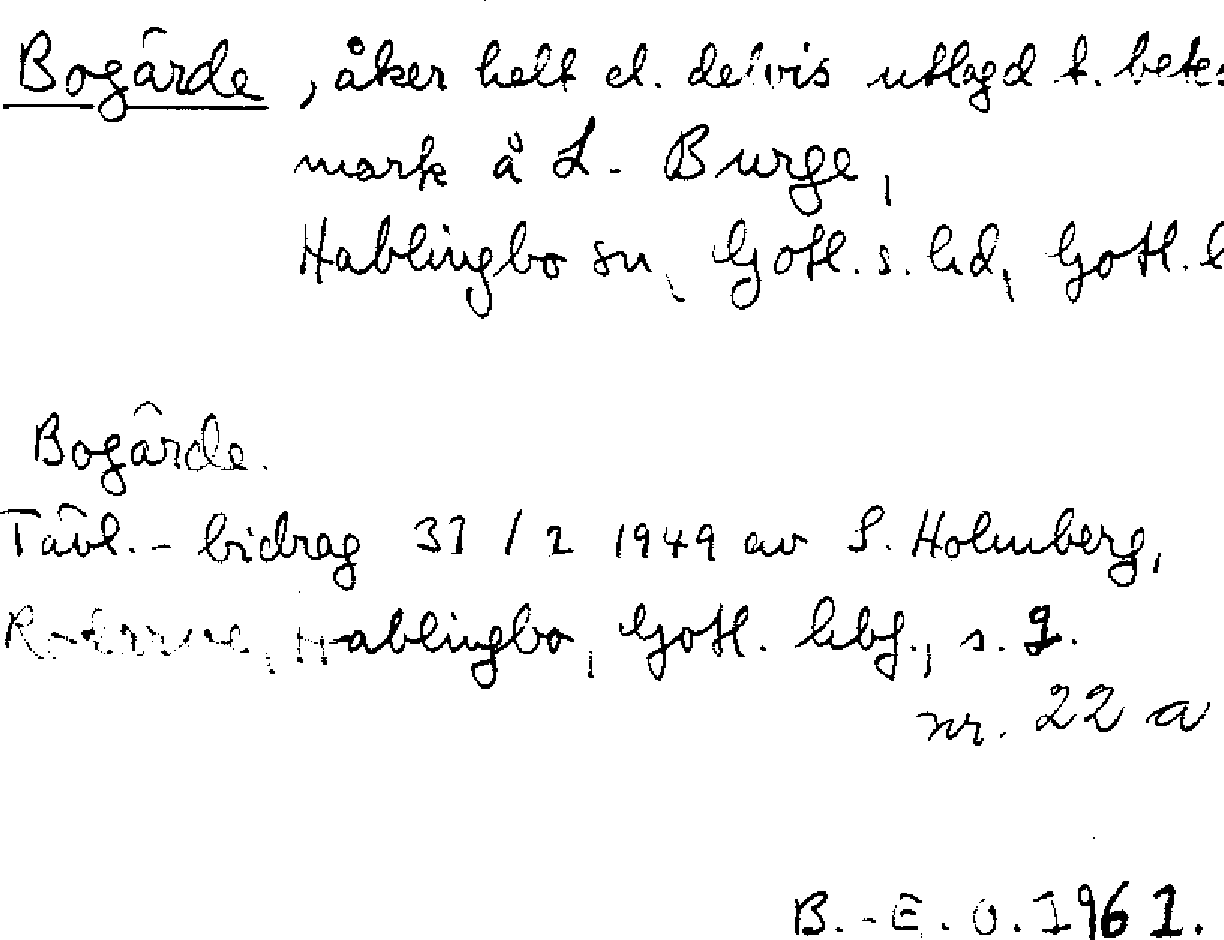 Bogårde, åker helt el. delvis utlagd t. betes
mark å L. Burge,
Hablingbo sn, Gotl. s. hd, Gotl. l
Bogårde.
Tävl.-bidrag 31/2 1949 av S. Holmberg,
Hablingbo, Gotl. hbf., s. 9.
nr. 22 a
B.-E. O. 1961.